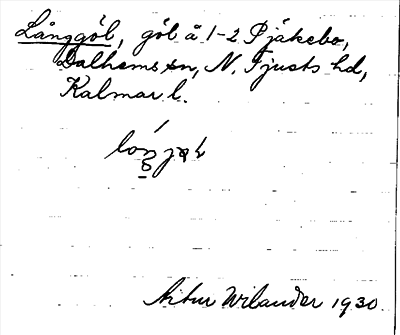 Långgöl, göl å 1-2 Pjäkebo,
Dalhems sn, N. Tjusts hd,
Kalmar l.
Artur Wilander 1930